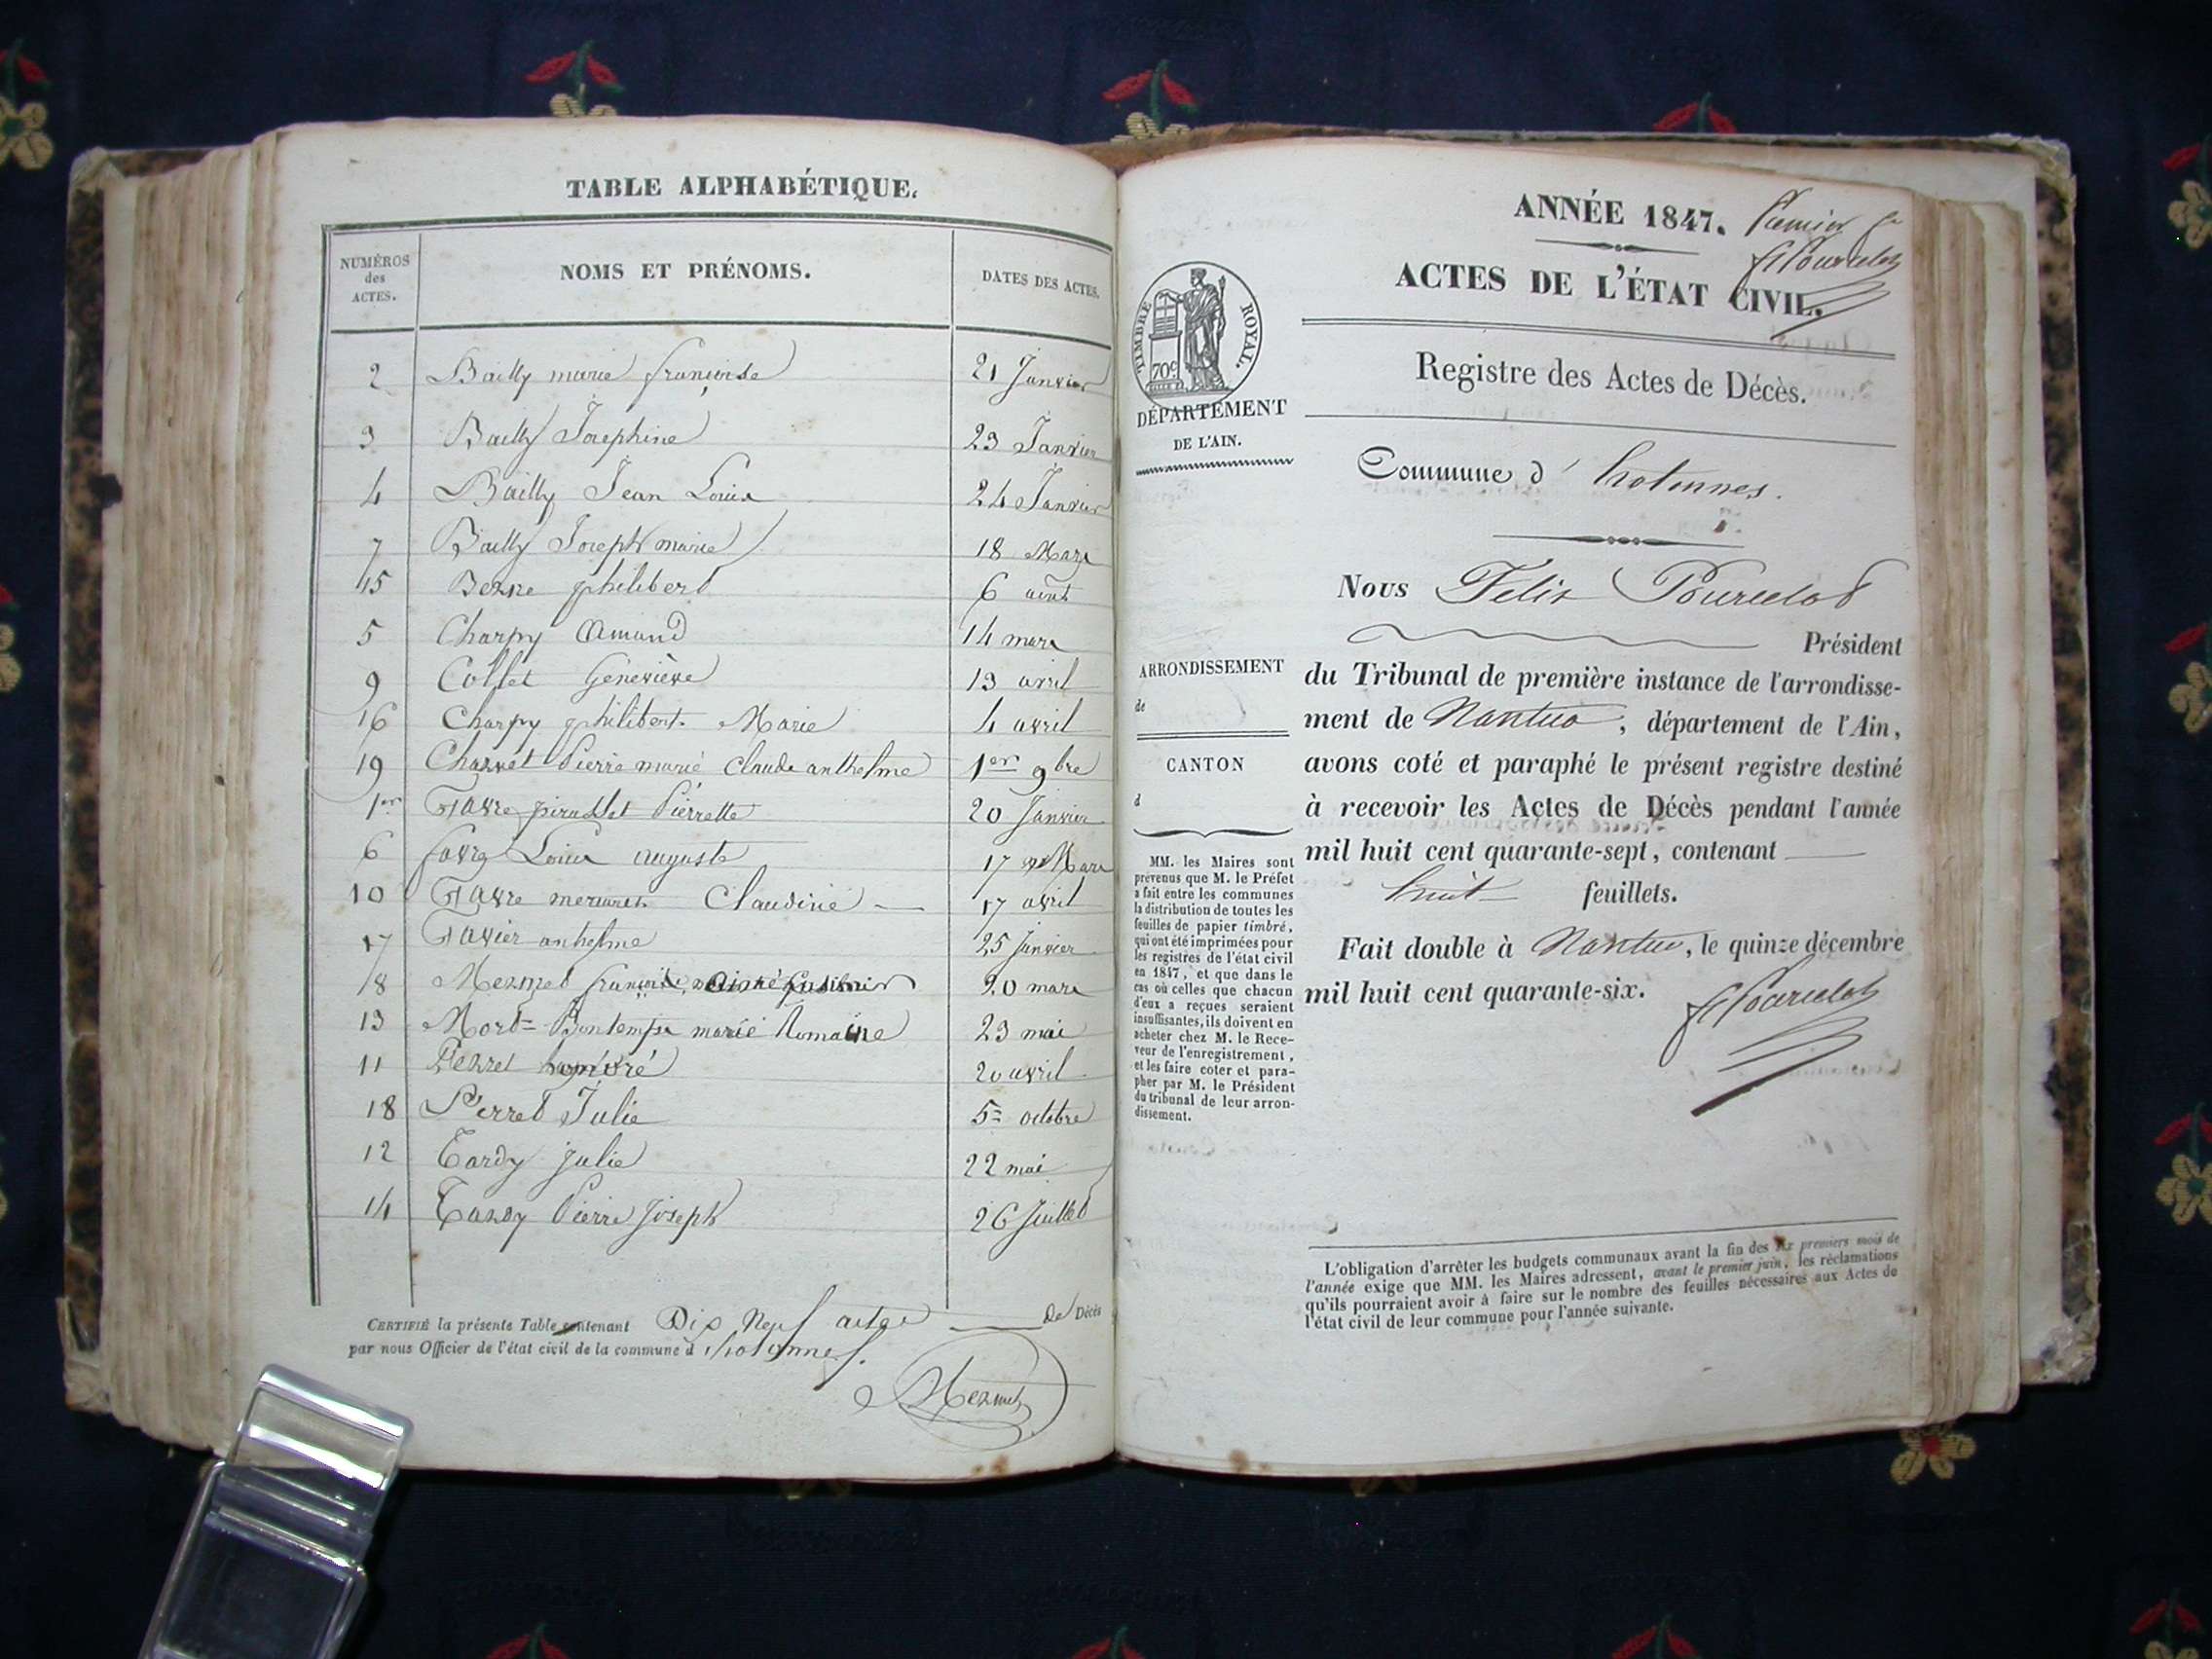 TABLE ALPHABÉTIQUE.
NUMÉROS des ACTES. NOMS ET PRÉNOMS. DATES DES ACTES.
2 Bailly marie françoise 21 Janvier
3 Bailly Josephine 23 Janvier
4 Bailly Jean Louis 24 Janvier
7 Bailly Joseph marie 18 Mars
15 Berne philibert 6 aout
5 Charpy Amand 14 mars
9 Collet Géneviève 13 avril
16 Charpy philibert Marie 4 avril
19 Charvet Pierre marie Claude anthelme 1er 9bre
1er favre Pierrette 20 Janvier
6 favre Louis auguste 17 Mars
10 favre mermet Claudine 17 avril
17 favier anthelme 25 Janvier
8 Mermet 20 mars
13 Mort-Bontemps marie Romaine 23 mai
11 Perret honoré 20 avril
18 Perret Julie 5 octobre
12 Tardy julie 22 mai
14 Tardy Pierre joseph 26 Juillet
CERTIFIÉ la présente Table contenant Dix Neuf actes de Décès
par nous Officier de l'état civil de la commune d hotonnes.
Mermet
ANNÉE 1847. Premier
fPourcelot
ACTES DE L'ÉTAT CIVIL.
TIMBRE ROYAL.
70c
DÉPARTEMENT
DE L'AIN.
Registre des Actes de Décès.
Commune d' hotonnes.
Nous Felix Pourcelot
Président
ARRONDISSEMENT
de
CANTON
d
du Tribunal de première instance de l'arrondisse-
ment de Nantua, département de l'Ain,
avons coté et paraphé le présent registre destiné
à recevoir les Actes de Décès pendant l'année
mil huit cent quarante-sept, contenant
huit feuillets.
Fait double à Nantua, le quinze décembre
mil huit cent quarante-six.
fPourcelot
MM. les Maires sont
prévenus que M. le Préfet
a fait entre les communes
la distribution de toutes les
feuilles de papier timbré,
qui ont été imprimées pour
les registres de l'état civil
en 1847, et que dans le
cas où celles que chacun
d'eux a reçues seraient
insuffisantes, ils doivent en
acheter chez M. le Rece-
veur de l'enregistrement,
et les faire coter et para-
pher par M. le Président
du tribunal de leur arron-
dissement.
L'obligation d'arrêter les budgets communaux avant la fin des six premiers mois de
l'année exige que MM. les Maires adressent, avant le premier juin, les réclamations
qu'ils pourraient avoir à faire sur le nombre des feuilles nécessaires aux Actes de
l'état civil de leur commune pour l'année suivante.